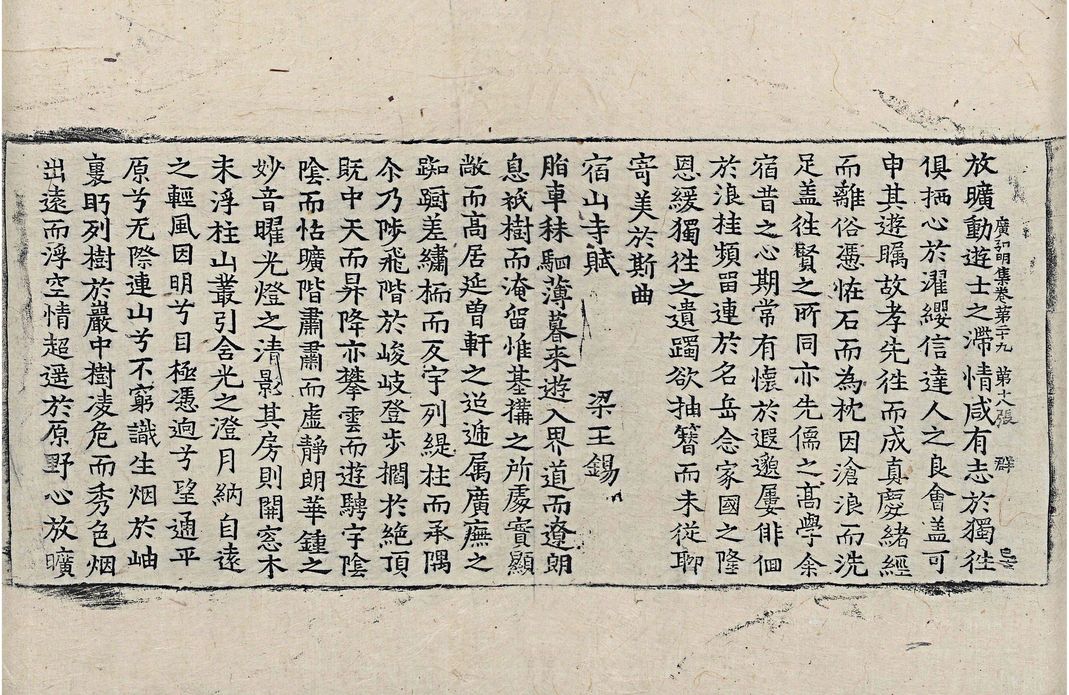 放曠動遊士之滯情咸有志於獨徃
廣弘明集卷第二十九 第十張 群
俱栖心於濯纓信達人之良會盖可
申其遊矚故孝先徃而成真慶緒經
而離俗憑恠石而為枕因滄浪而洗
足盖徃賢之所同亦先儒之高學余
宿昔之心期常有懷於遐邈屢徘徊
於浪桂頻留連於名岳念家國之隆
恩緩獨徃之遺躅欲抽簪而未従聊
寄羙於斯曲
宿山寺賦 梁王錫
脂車秣駟薄暮来遊入界道而遼朗
息祇樹而淹留惟基搆之所處實顯
敞而高居延曽軒之迢遞属廣廡之
踟蹰差繡栭而反宇列緹柱而承隅
尒乃陟飛階於峻岐登步櫩於絶頂
既中天而昇降亦攀雲而遊騁宇陰
陰而怙曠階肅肅而虚靜朗華鍾之
妙音曜光燈之清影其房則開窓木
末浮柱山叢引含光之澄月納自遠
之輕風因明兮目極憑逈兮望通平
原兮无際連山兮不窮識生烟於岫
裏眄列樹於巖中樹凌危而秀色烟
出遠而浮空情超遥於原野心放曠